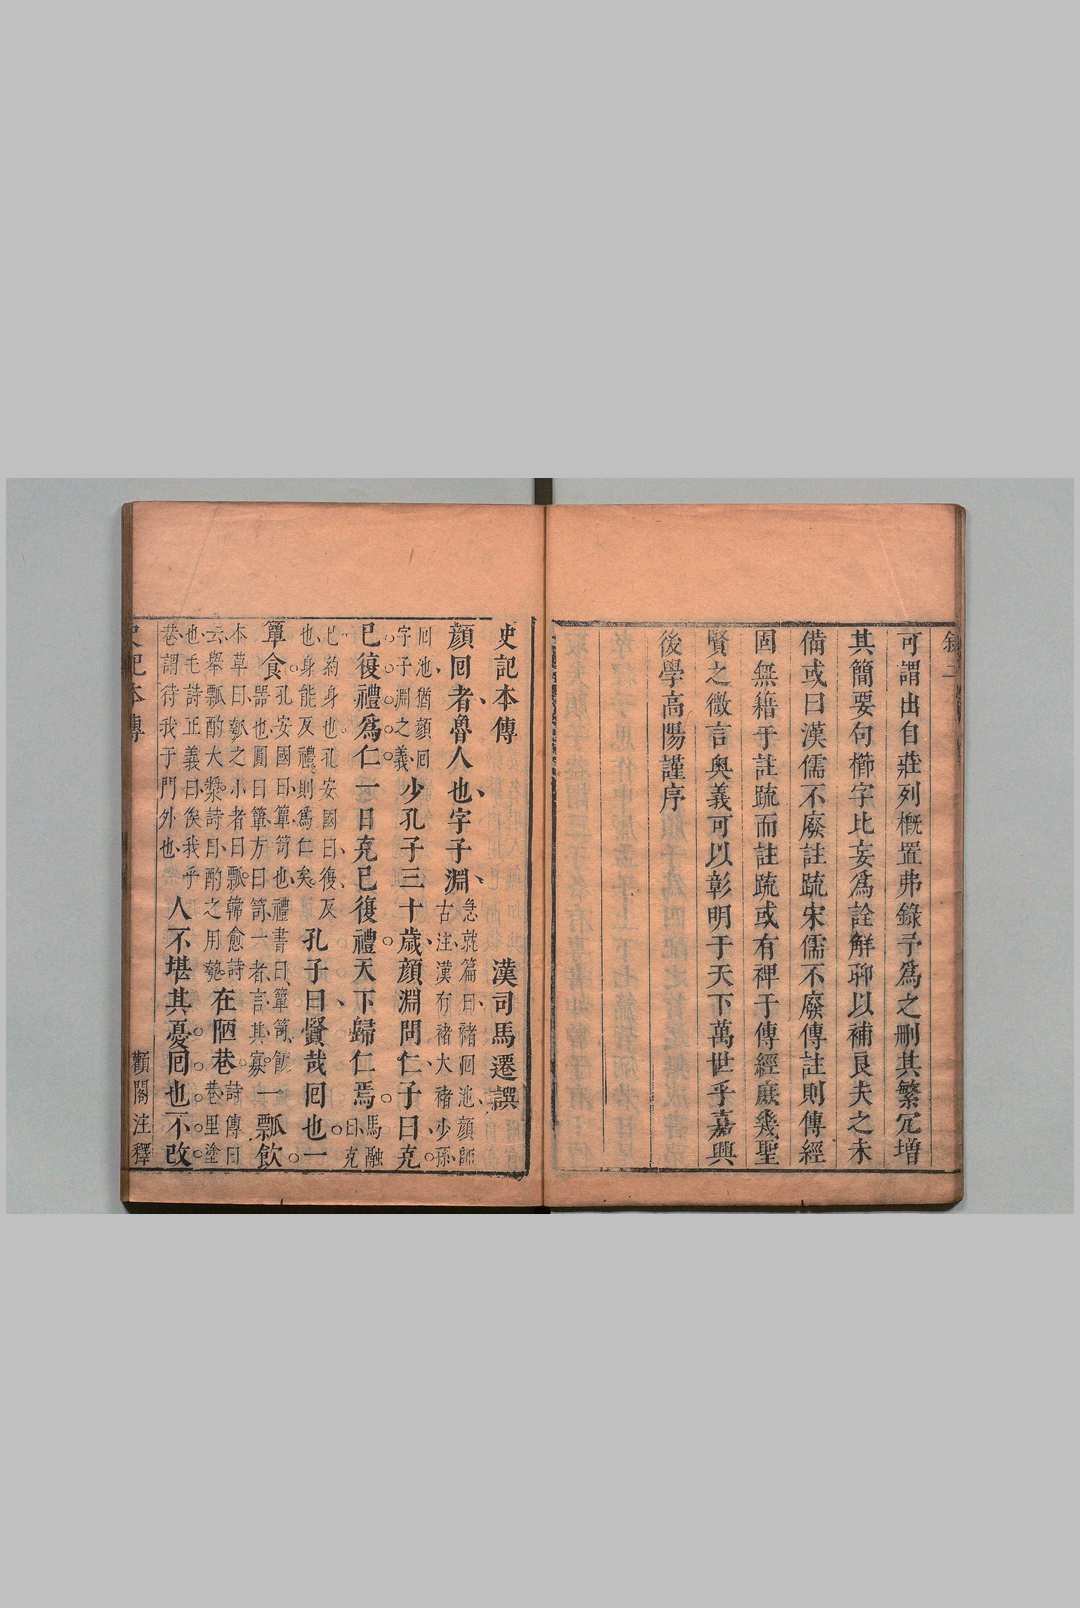 可謂出自莊列概置弗錄予為之刪其繁冗增
其簡要句櫛字比妄為詮解聊以補艮夫之未
備或曰漢儒不廢註䟽宋儒不廢傳註則傳經
固無籍乎註䟽而註䟽或有裨于傳經庶幾聖
賢之微言奥義可以彰明于天下萬世乎嘉興
後學高陽謹序
史記本傳
漢司馬遷譔
顔囘者魯人也字子淵
急就篇曰禇囘池顔師
古注漢有禇大禇少孫
囘池猶顔囘
字子淵之義
少孔子三十歲顔淵問仁子曰克
已復禮為仁一日克已復禮天下歸仁焉
馬融
曰克
已約身也孔安國曰復反
也身能反禮則爲仁矣
孔子曰賢哉囘也一
簞食
孔安國曰簞笥也禮書曰簞笥飯
器也圓曰簞方曰笥
一瓢飲
本草曰瓠之小者曰瓢韓愈詩
云舉瓢酌大
詩曰酌之用匏
在陋巷
詩傳曰
巷里塗
也毛詩正義曰俟我乎
巷謂待我于門外也
人不堪其憂囘也不改
史記本傳
觀閣注釋